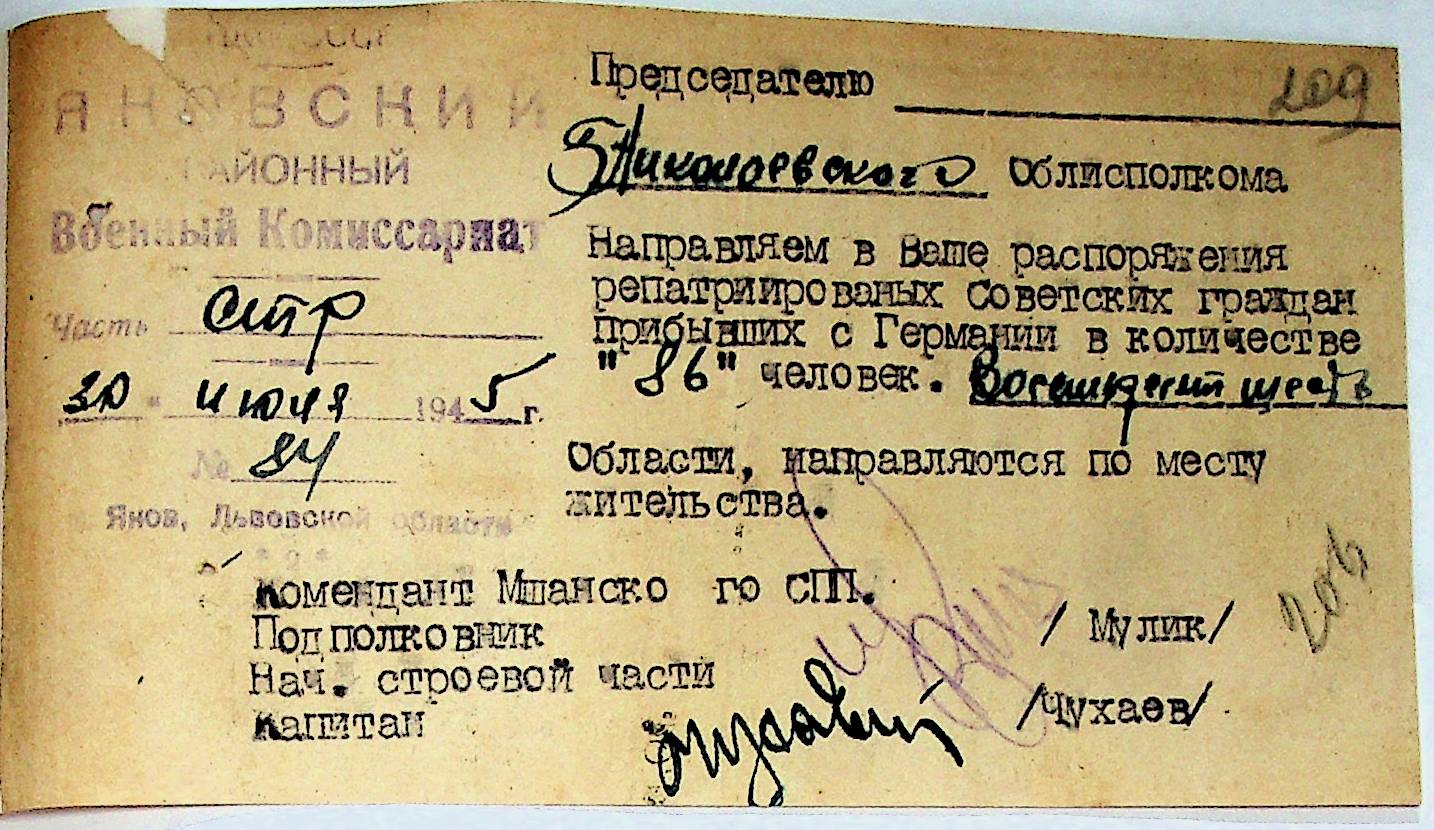 ЯНОВСКИЙ
РАЙОННЫЙ
Военный Комиссариат
Часть стр
30 " июля 1945 г.
№ 84
Янов, Львовской области
Председателю
209
Николаевского Облисполкома
Направляем в Ваше распоряжения
репатриированых Советских граждан
прибывших с Германии в количестве
"86" человек. Восемдесят шесть
Области, направляются по месту
жительства.
Комендант Мшанско го СПП.
Подполковник /Мулик/
Нач. строевой части
Капитан /Чухаев/